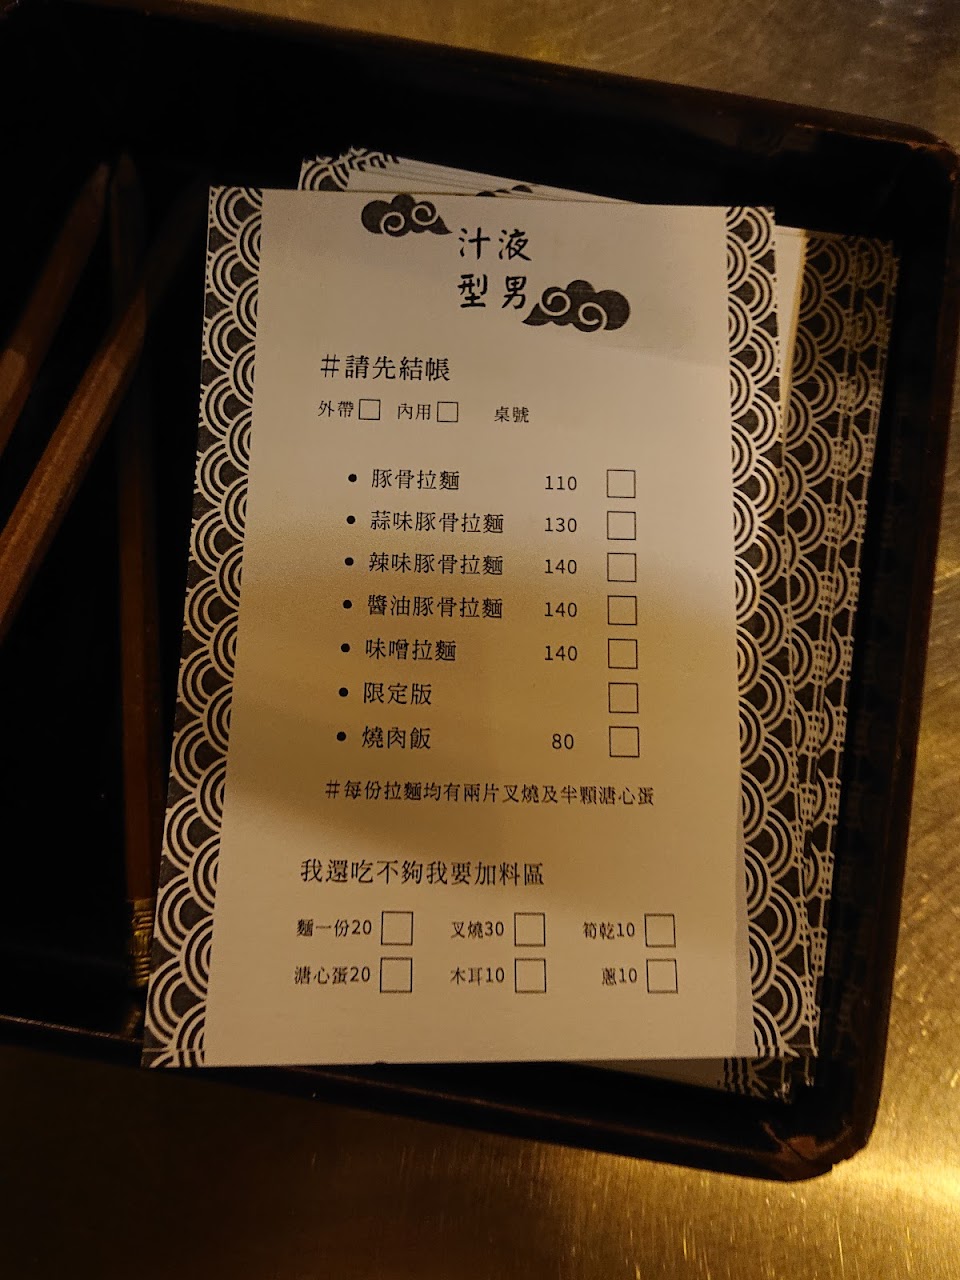 汁液
型男
#請先結帳
外帶□ 內用□ 桌號
• 豚骨拉麵 110 □
• 蒜味豚骨拉麵 130 □
• 辣味豚骨拉麵 140 □
• 醬油豚骨拉麵 140 □
• 味噌拉麵 140 □
• 限定版 □
• 燒肉飯 80 □
#每份拉麵均有兩片叉燒及半顆溏心蛋
我還吃不夠我要加料區
麵一份20 □ 叉燒30 □ 筍乾10 □
溏心蛋20 □ 木耳10 □ 蔥10 □